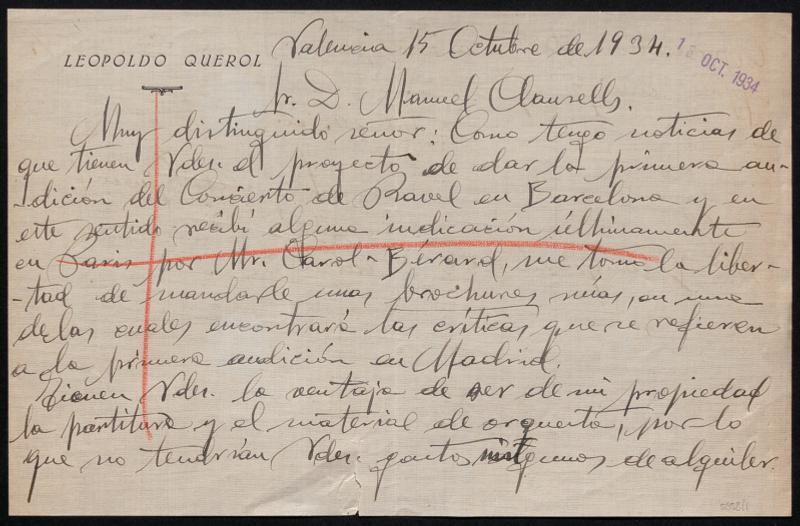 LEOPOLDO QUEROL
Valencia 15 Octubre de 1934.
OCT. 1934
Sr. D. Manuel Clausells.
Muy distinguido señor: Como tengo noticias de
que tienen Vdes. el proyecto de dar la primera au-
-dición del Concierto de Ravel en Barcelona y en
este sentido recibí alguna indicación últimamente
en Paris por Mr. Carol-Bérard, me tomo la liber-
-tad de mandarle unas brochures mías, en una
de las cuales encontrará las críticas que se refieren
a la primera audición en Madrid.
Tienen Vdes. la ventaja de ser de mi propiedad
la partitura y el material de orquesta, por lo
que no tendrían Vdes. gastos ningunos de alquiler.